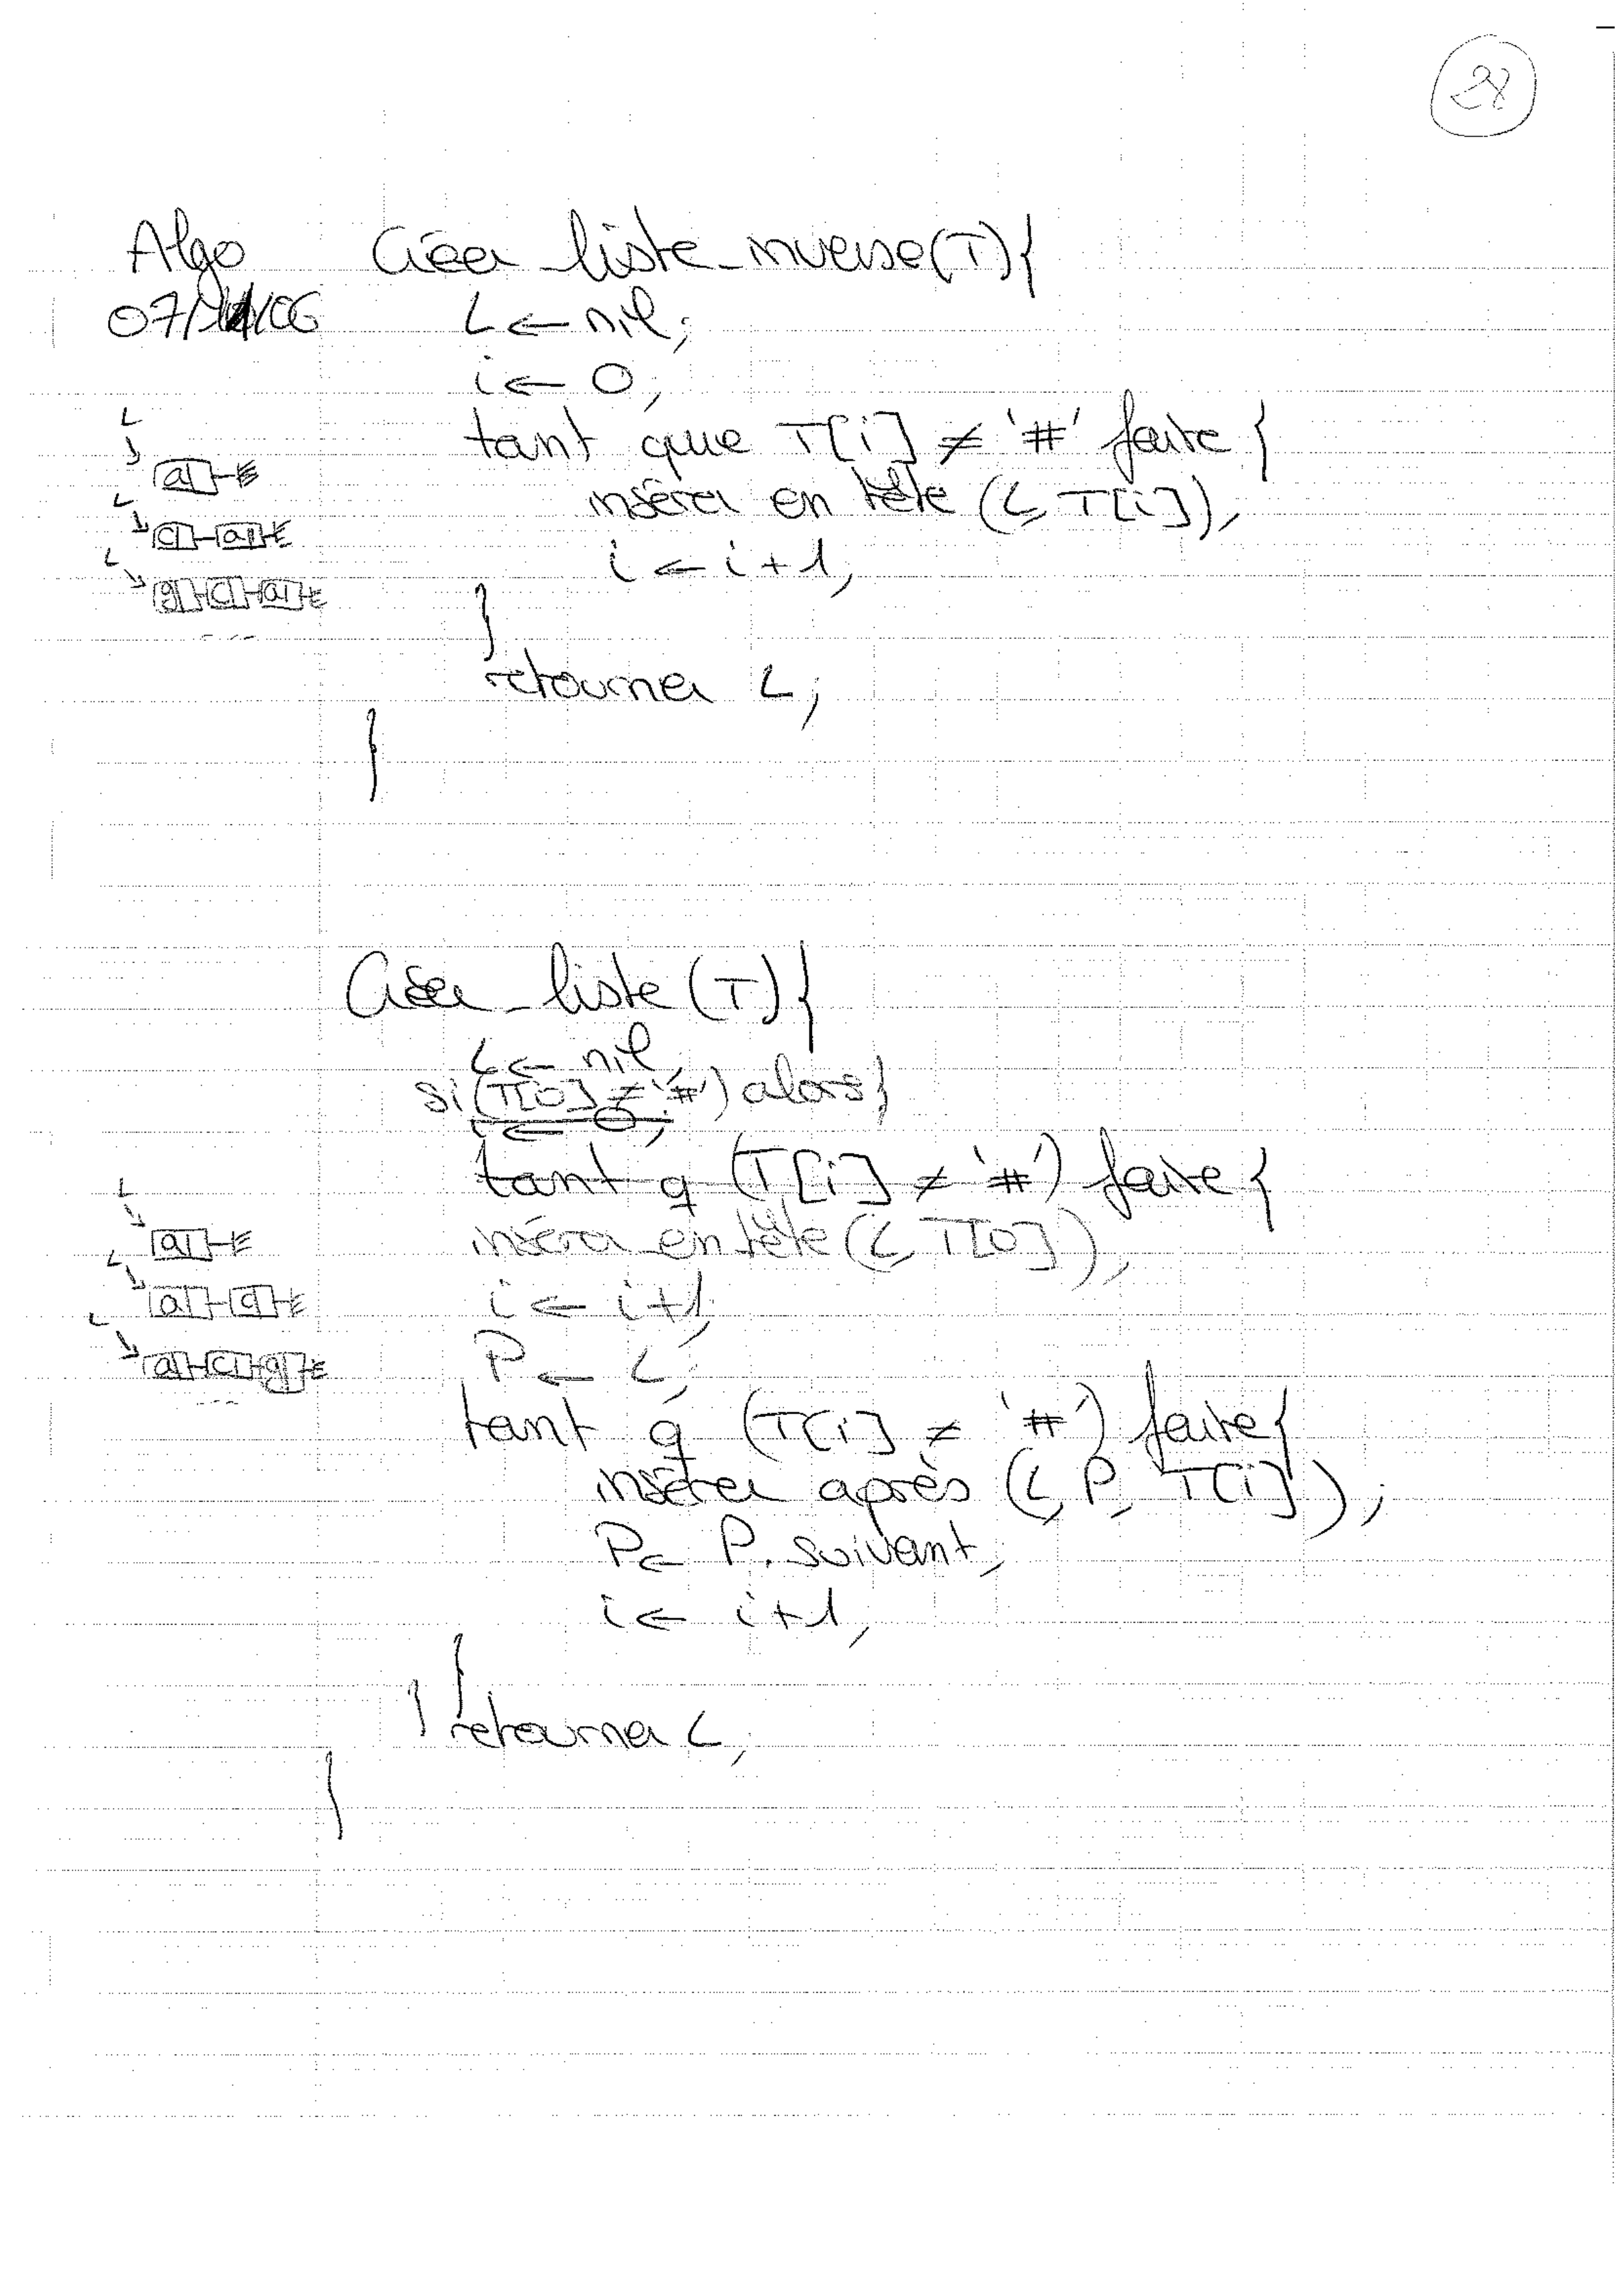 Algo
Créer_liste_inverse(T){
L ← nil;
i ← 0;
tant que T[i] ≠ '#' faire {
insérer en tête (L, T[i]);
i ← i+1;
}
retourner L;
}
L
a
L
c a
L
g c a
---
Créer_liste(T){
L ← nil;
si (T[0] ≠ '#') alors{
i ← 0;
tant q (T[i] ≠ '#') faire {
insérer en tête (L, T[0]);
i ← i+1;
P ← L;
tant q (T[i] ≠ '#') faire{
insérer après (L, P, T[i]);
P ← P.suivant;
i ← i+1;
}
} retourner L;
}
L
a
L
a c
L
a c g
---